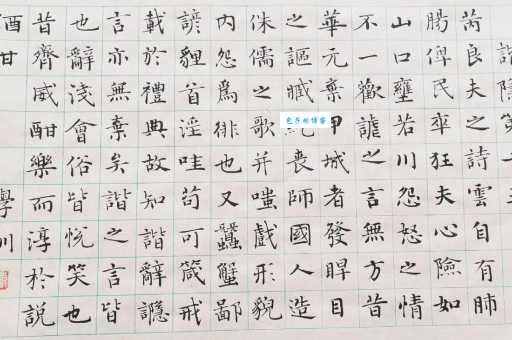 諧隱第
芮良夫之詩雲自有肺
腸俾民卒狂夫心險如
山口壅若川怨怒之情
不一歡謔之言無方昔
華元棄甲城者發睅目
之謳臧喪師國人造
侏儒之歌并嗤戲形貌
內怨爲俳也又蠶蟹鄙
諺貍首淫哇苟可箴戒
載於禮典故知諧辭讔
言亦無棄矣諧之言皆
也辭淺會俗皆悅笑也
昔齊威酣樂而淳於說
酒甘